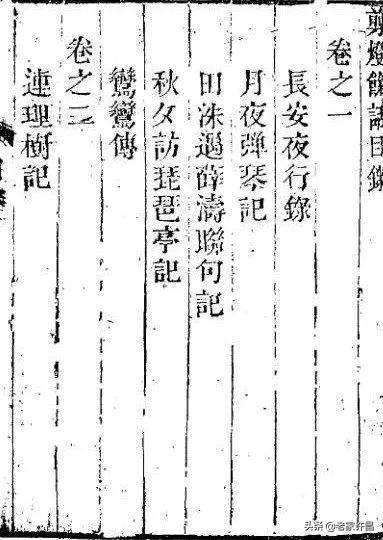 剪燈餘話目錄
卷之一
長安夜行錄
月夜彈琴記
田洙遇薛濤聯句記
秋夕訪琵琶亭記
鸞鸞傳
卷之二
連理樹記
头条 @老家许昌